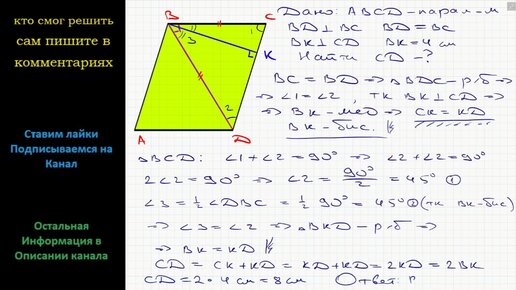 кто смог решить
сам пишите в
комментариях
Ставим лайки
Подписываемся на
Канал
Остальная
Информация в
Описании канала
B
C
K
A
D
1
2
3
Дано: ABCD – парал-м
BD ⊥ BC BD = BC
BK ⊥ CD BK = 4 см
Найти CD – ?
BC = BD => △BDC – р/б =>
=> ∠1 = ∠2, тк BK ⊥ CD =>
=> BK – мед => CK = KD
BK – бис.
△BCD: ∠1 + ∠2 = 90° => ∠2 + ∠2 = 90°
2∠2 = 90° => ∠2 = 90°/2 = 45° ①
∠3 = ½ ∠DBC = ½ 90° = 45° ② (тк BK – бис)
=> ∠3 = ∠2 => △BKD – р/б =>
=> BK = KD
CD = CK + KD = KD + KD = 2KD = 2BK
CD = 2 · 4 см = 8 см Ответ: